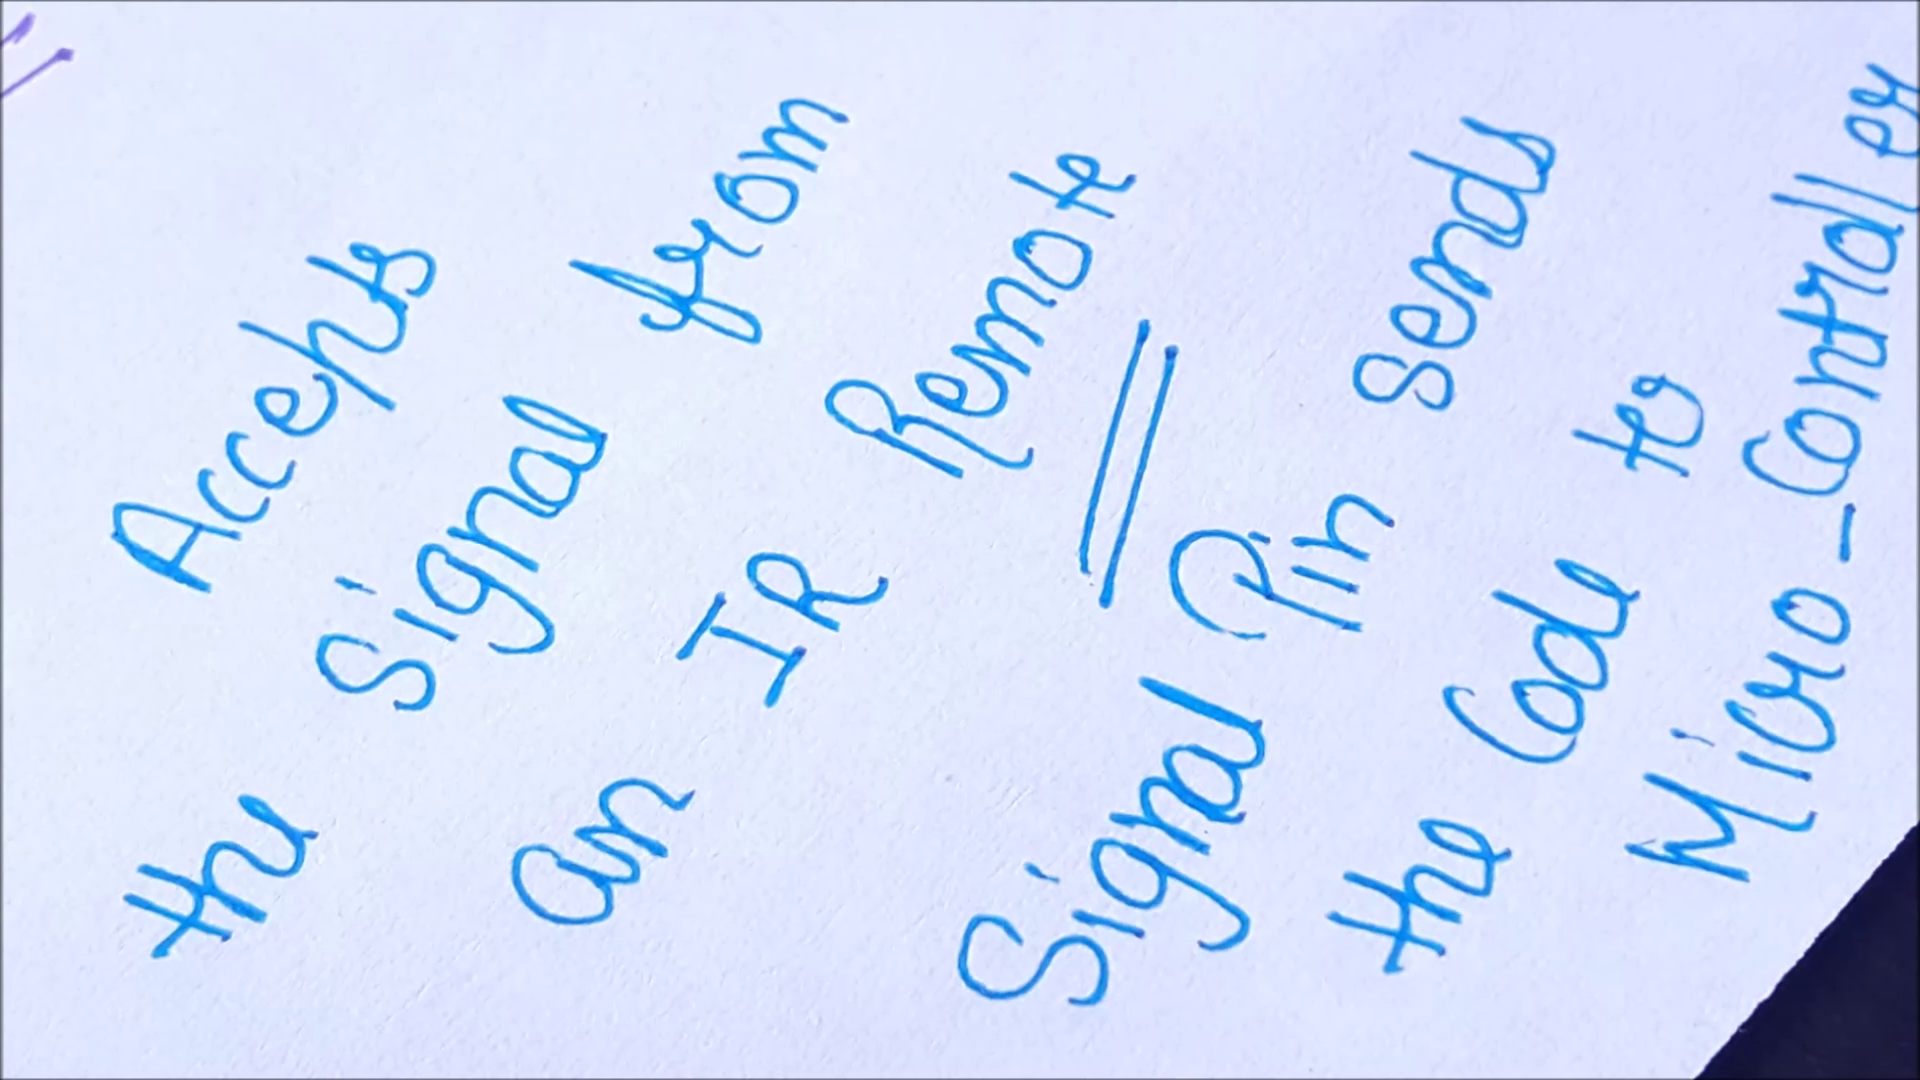 Accepts
the Signal from
an IR Remote
Signal Pin sends
the Code to
Micro-Controller